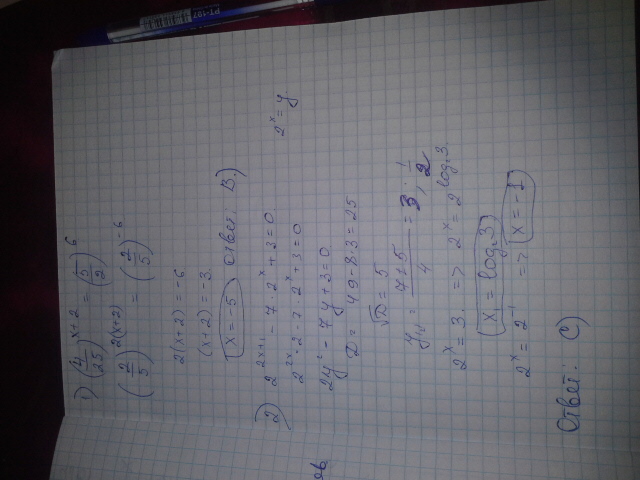 1) (4/25)^(x+2) = (5/2)^6
(2/5)^(2(x+2)) = (2/5)^(-6)
2(x+2) = -6
(x+2) = -3
x = -5 Ответ: B.)
2) 2^(2x+1) - 7·2^x + 3 = 0
2^x = y
2^(2x)·2 - 7·2^x + 3 = 0
2y² - 7y + 3 = 0
D = 49 - 8·3 = 25
√D = 5
y₁,₂ = (7±5)/4 = 3; 1/2
2^x = 3. => 2^x = 2^(log₂3).
x = log₂3
2^x = 2^(-1) => x = -1
Ответ: C)
PT-107